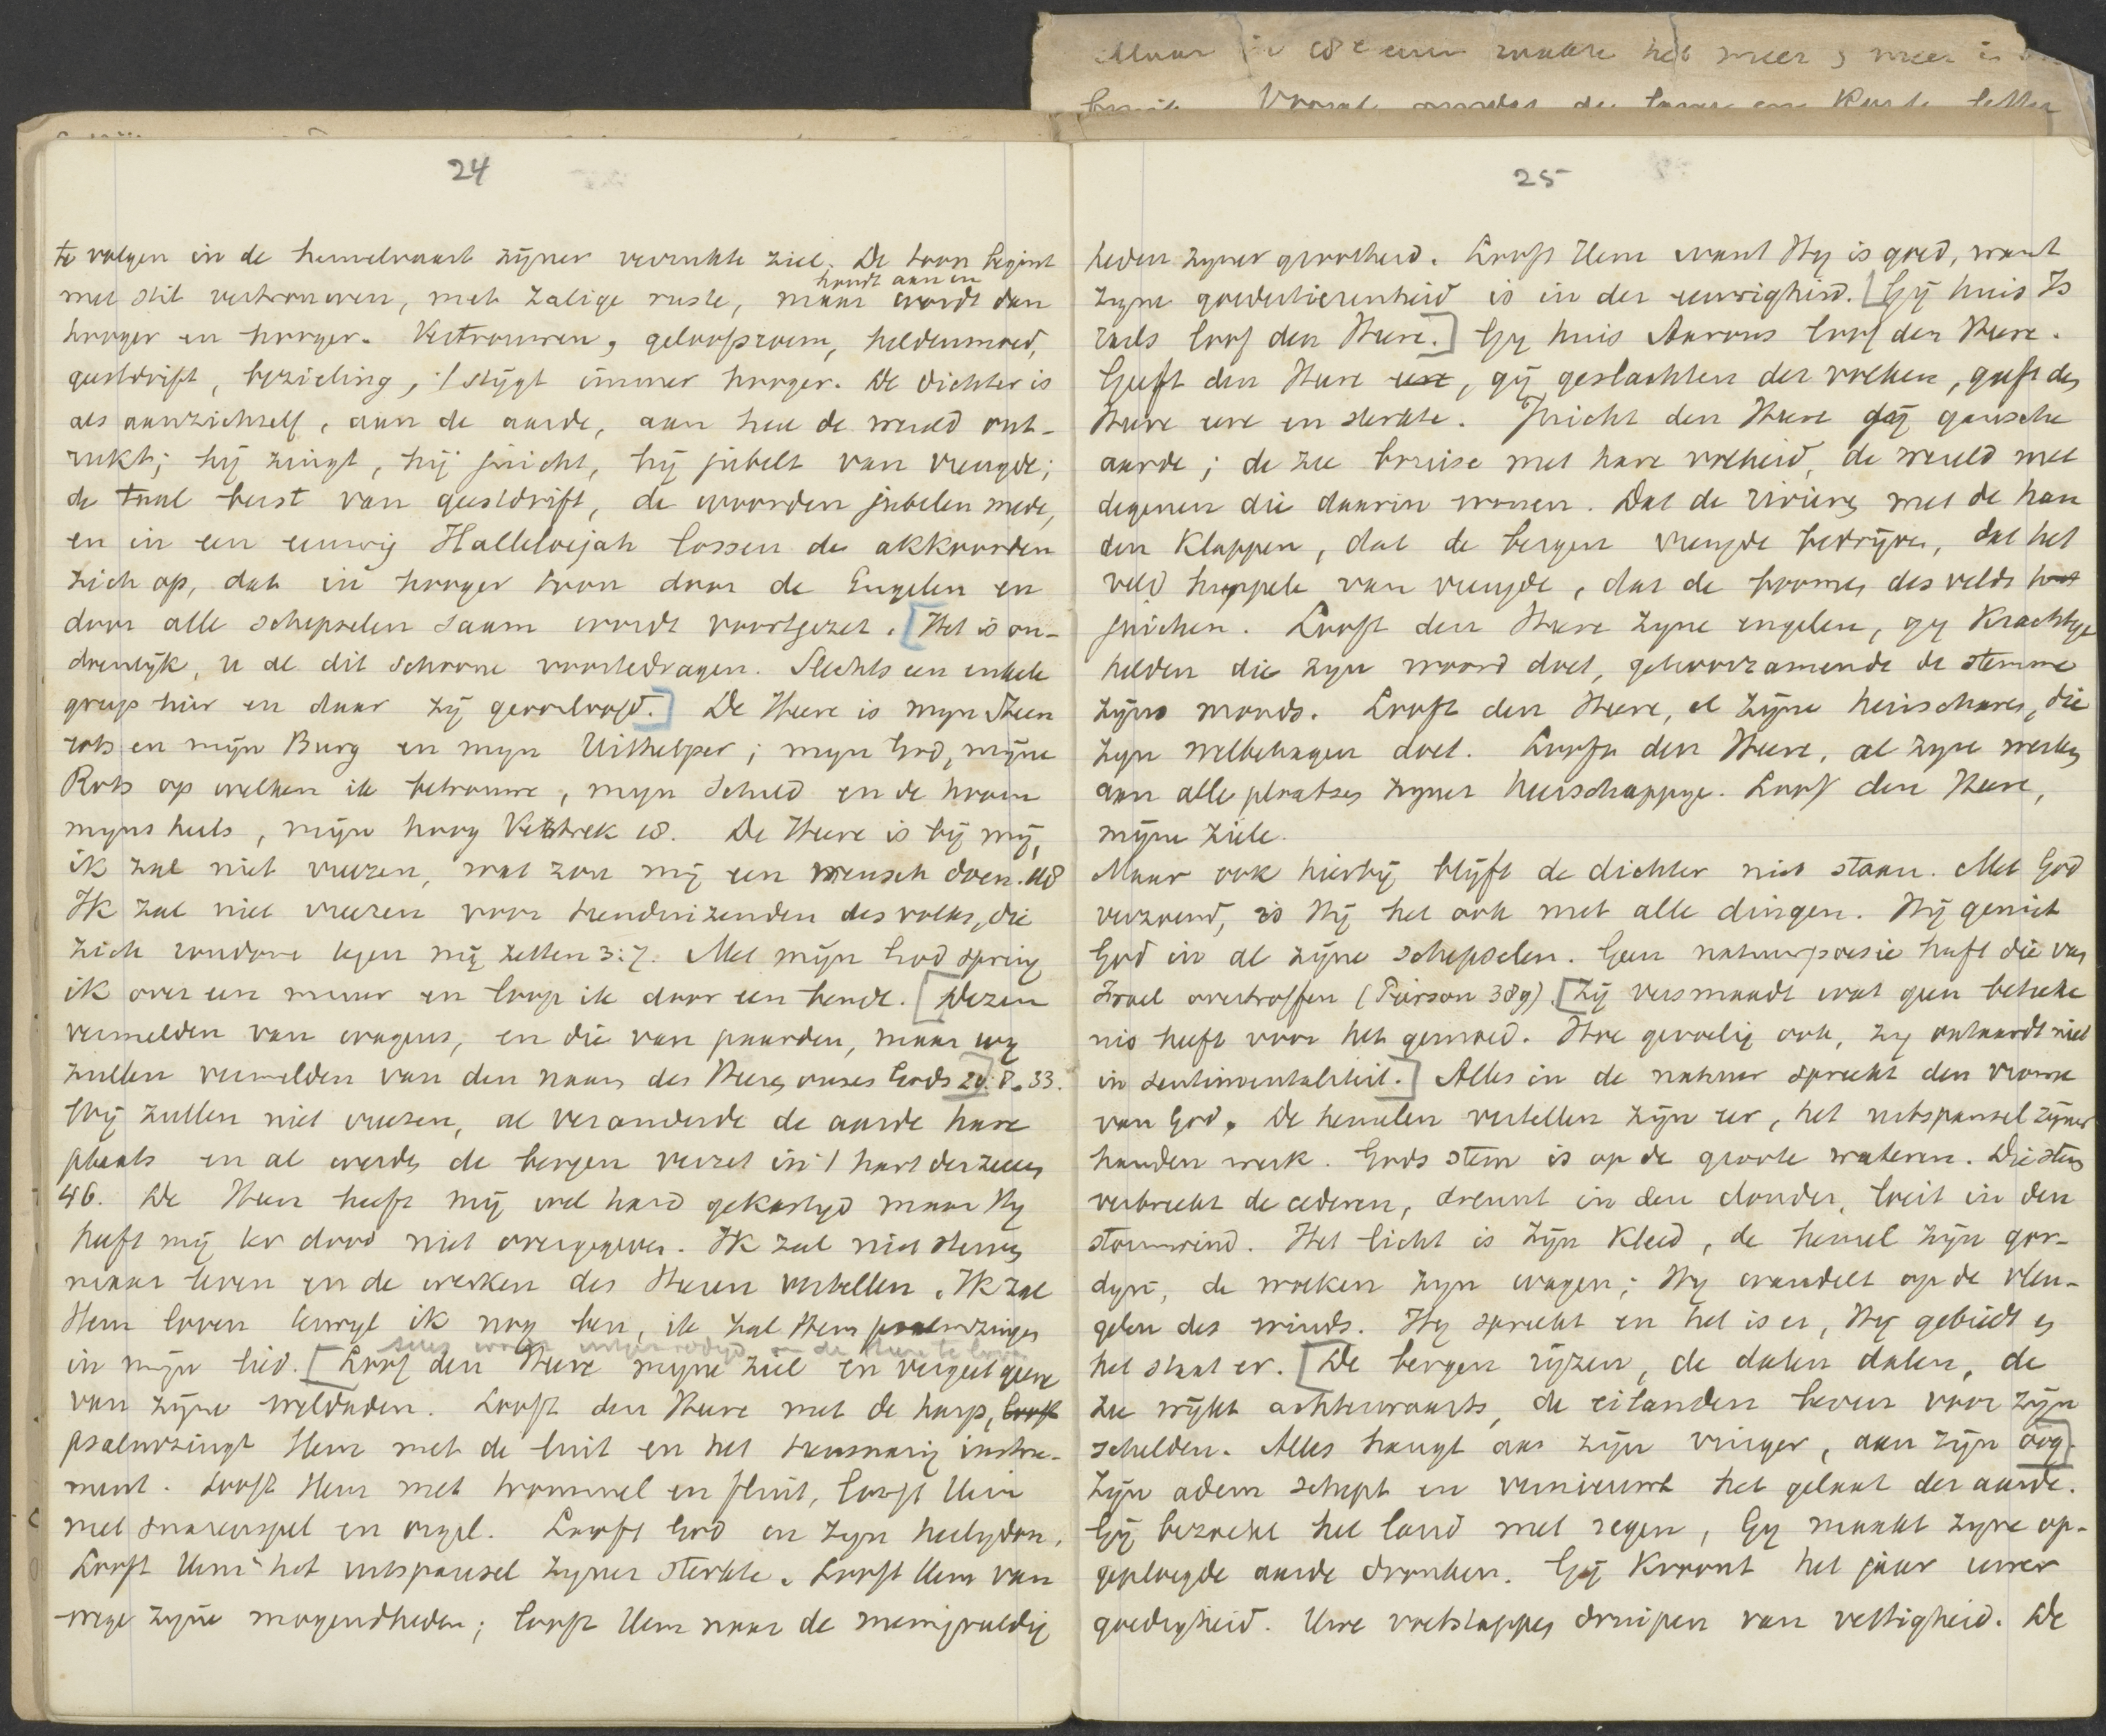 Maar in 18e eeuw raakte het meer & meer is
24
te volgen in de hemelvaart zijner verrukte ziel. De toon begint
houdt aan en
met stil vertrouwen, met zalige ruste, maar wordt dan
hooger en hooger. Vertrouwen, geloofsroem, heldenmoed,
geestdrift, bezieling, 't stijgt immer hooger. De dichter is
als aan zichzelf, aan de aarde, aan heel de wereld ont-
rukt; hij zingt, hij juicht, hij jubelt van vreugde;
de taal berst van geestdrift, de woorden jubelen mede,
en in een eeuwig Halleluejah lossen de akkoorden
zich op, dat in hooger toon door de Engelen en
door alle schepselen saam wordt voortgezet. [Het is on-
doenlijk, u al dit schoone voortedragen. Slechts een enkele
greep hier en daar zij geoorloofd.] De Heere is mijn Steen
rots en mijn Burg en myn Uithelper; myn God, mijne
Rots op welken ik betrouwe, myn Schild en de hoorn
myns heils, mijn hoog Vertrek 18. De Heere is bij mij,
ik zal niet vreezen, wat zou mij een mensch doen. 118
Ik zal niet vreezen voor tienduizenden des volks, die
zich rondom tegen mij zetten 3:7. Met mijn God spring
ik over een muur en loop ik door een bende. [Dezen
vermelden van wagens, en die van paarden, maar wy
zullen vermelden van den naam des Heeren onzes Gods 20:8.] 33.
Wij zullen niet vreezen, al veranderde de aarde hare
plaats en al werden de bergen verzet in 't hart der zeeën
46. De Heer heeft mij wel hard gekastyd maar Hy
heeft mij ter dood niet overgegeven. Ik zal niet sterven
maar leven en de werken des Heeren vertellen. Ik zal
Hem loven terwyl ik nog ben, ik zal Hem psalmzingen
in mijn lied. [Loof den Heere mijne ziel en vergeet geene
van zijne weldaden. Looft den Heere met de harp, looft
psalmzingt Hem met de luit en het tiensnarig instru-
ment. Looft Hem met trommel en fluit, looft Hem
met snarenspel en orgel. Looft God in zyn heiligdom,
Looft Hem in het uitspansel zyner sterkte. Looft Hem van
wege zijne mogendheden; looft Hem naar de menigvuldig
25
heden zyner grootheid. Looft Hem want Hy is goed, want
zyne goedertierenheid is in der eeuwigheid. [Gij huis Is
raels loof den Heere.] Gy huis Aarons loof den Heere.
Geeft den Heere eere, gij geslachten der volken, geeft den
Heere eere en sterkte. Juicht den Heere gij gansche
aarde; de zee bruise met hare volheid, de wereld met
degenen die daarin wonen. Dat de rivieren met de han
den klappen, dat de bergen vreugde bedrijven, dat het
veld huppele van vreugde, dat de boomen des velds
juichen. Looft den Heere zyne engelen, gy krachtige
helden die zyn woord doet, gehoorzamende de stemme
zijns woords. Looft den Heere, al zijne heirscharen, die
zyn welbehagen doet. Looft den Heere, al zyne werken
aan alle plaatsen zyner heerschappye. Loof den Heere,
mijne ziele.
Maar ook hierbij blijft de dichter niet staan. Met God
verzoend, is Hij het ook met alle dingen. Hij geniet
God in al zijne schepselen. Geen natuurpoesie heeft die van
Israel overtroffen (Pierson 389). [Zij versmaadt wat geen beteeke
nis heeft voor het gemoed. Hoe gevoelig ook, zy ontaardt niet
in sentimentaliteit.] Alles in de natuur spreekt den vrome
van God. De hemelen vertellen zijn eer, het uitspansel zijner
handen werk. Gods stem is op de groote wateren. Die stem
verbreekt de cederen, dreunt in den donder, loeit in den
stormwind. Het licht is zijn kleed, de hemel zijn gor-
dyn, de wolken zyn wagen; Hy wandelt op de vleu-
gelen des winds. Hy spreekt en het is er, Hy gebiedt en
het staat er. [De bergen rijzen, de dalen dalen, de
zee wijkt achterwaarts, de eilanden beven voor zijn
schelden. Alles hangt aan zijn vinger, aan zijn oog.]
Zijn adem schept en vernieuwt het gelaat der aarde.
Gij bezoekt het land met regen, Gy maakt zyne op-
geploegde aarde dronken. Gij kroont het jaar uwer
goedigheid. Uwe voetstappen druipen van vettigheid. De